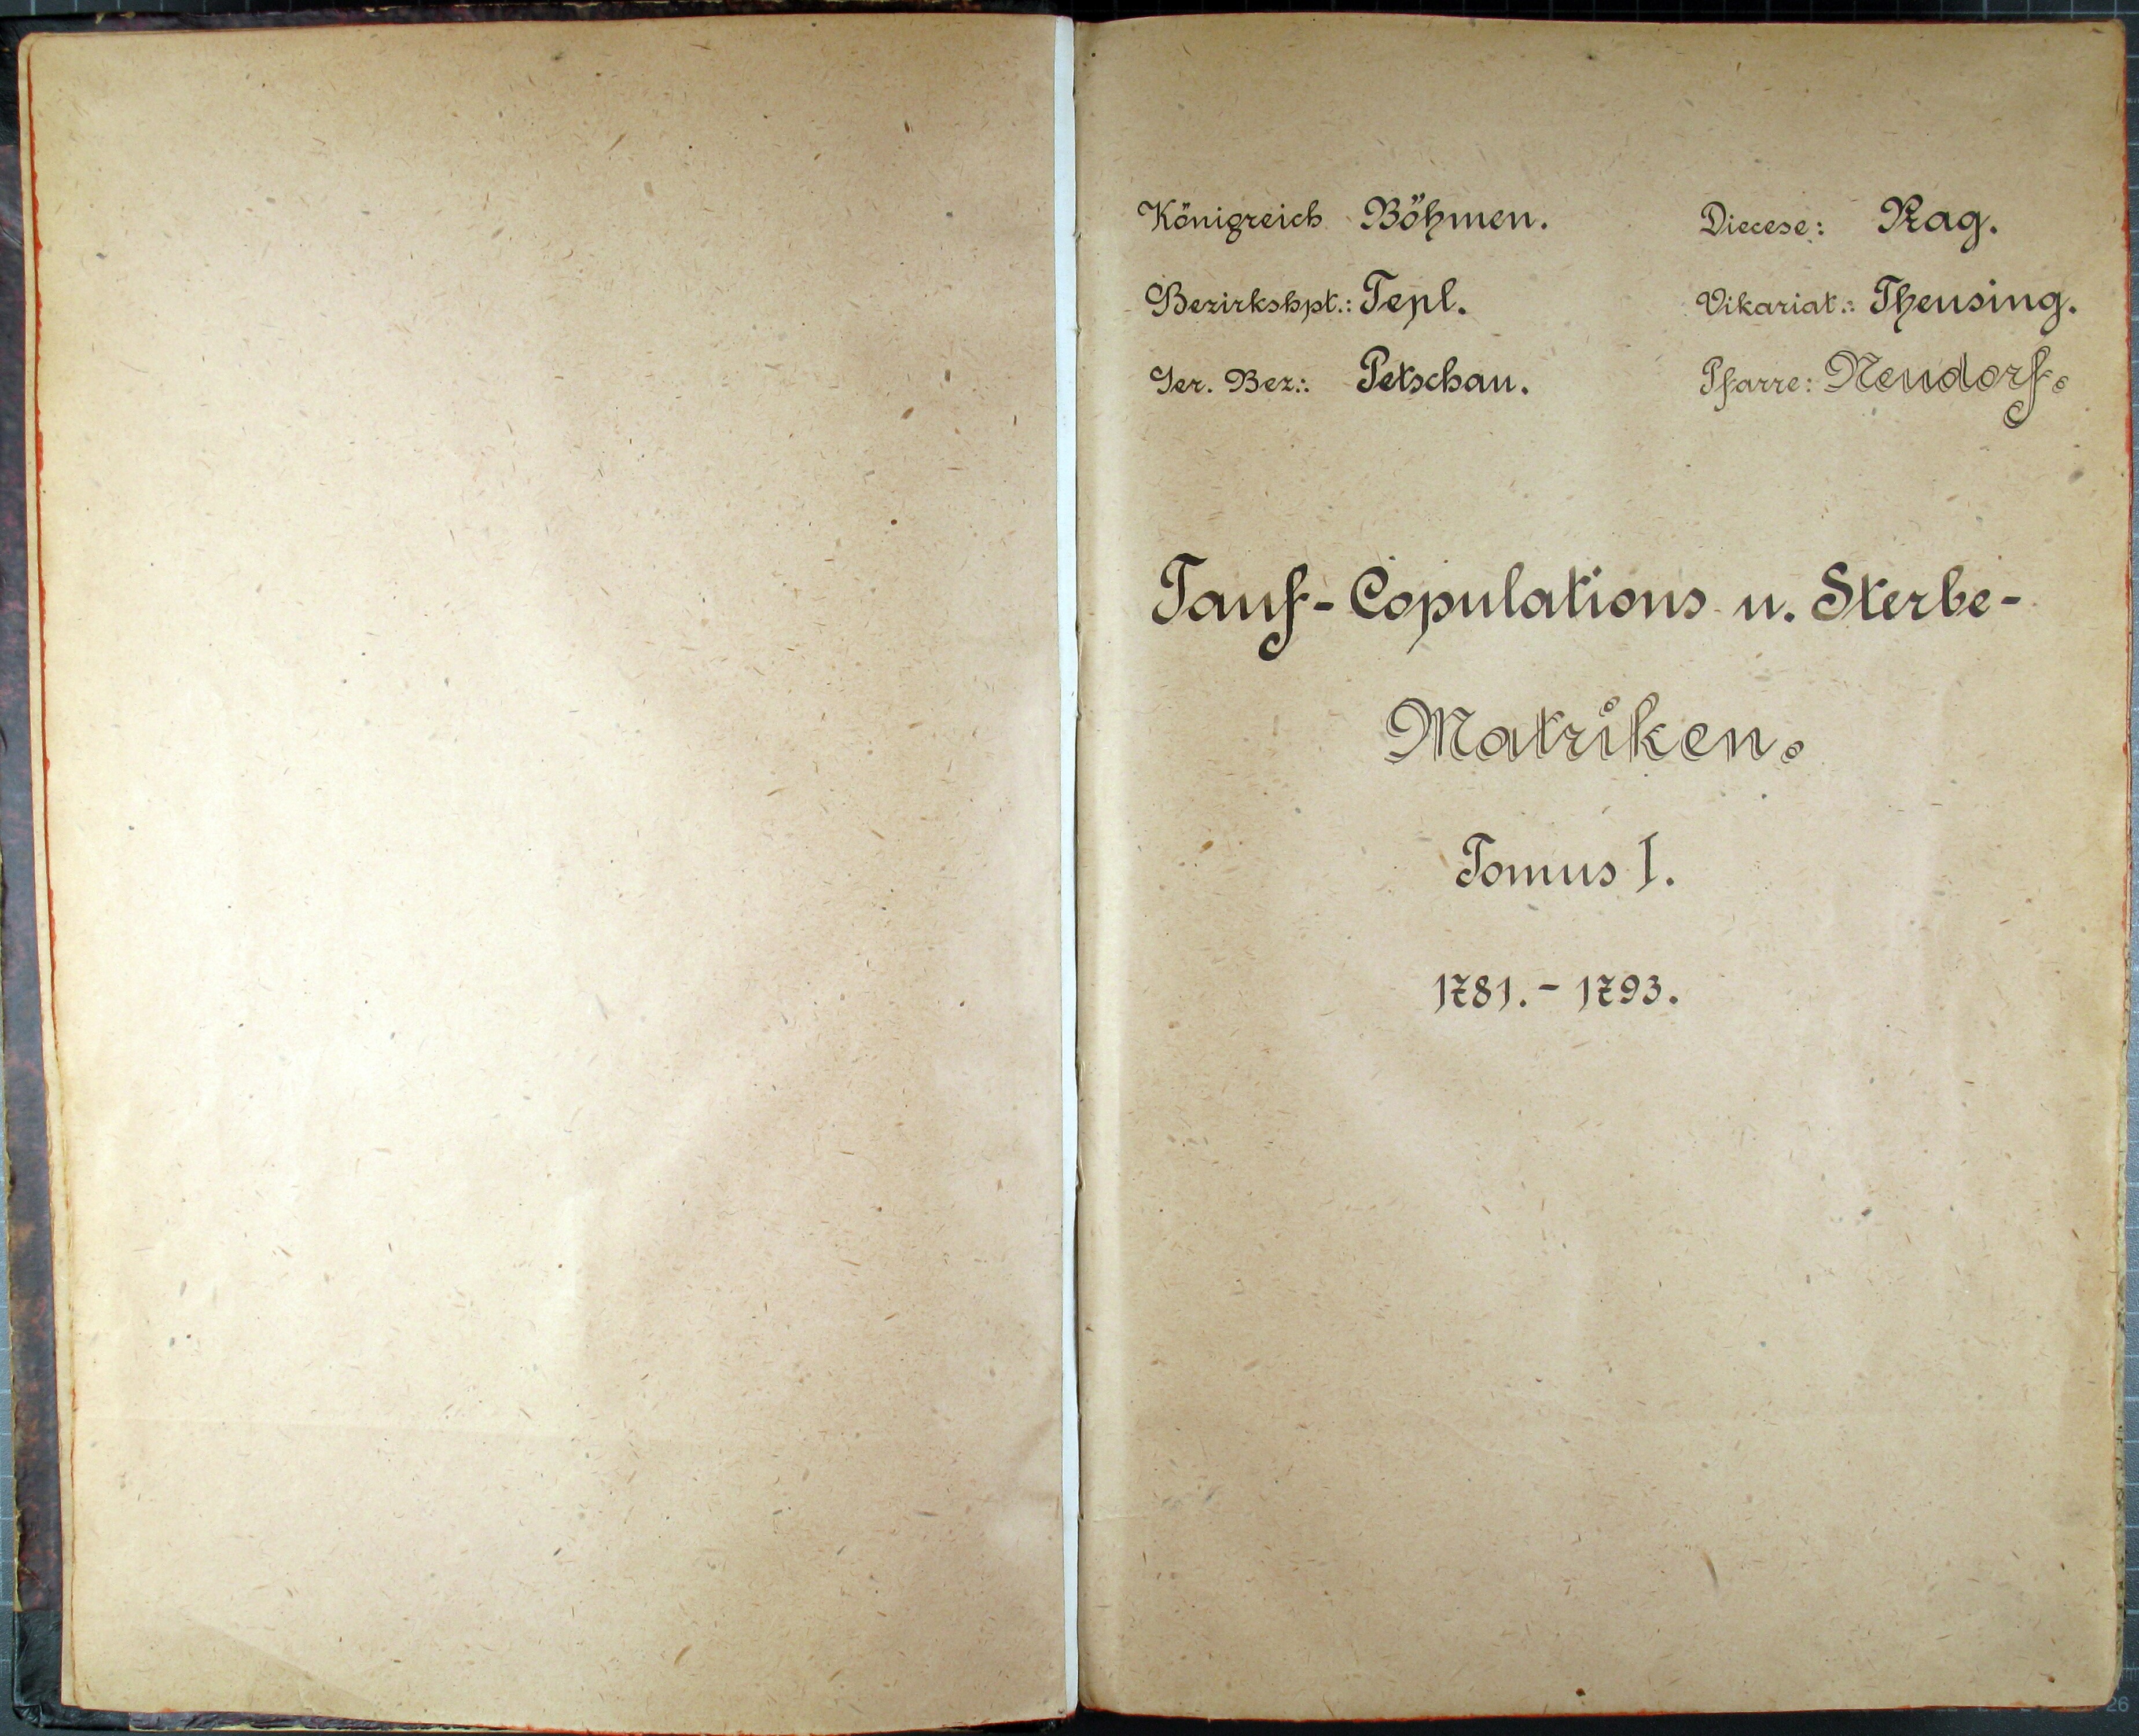 Königreich Böhmen. Diecese: Prag.
Bezirkshpt.: Tepl. Vikariat.: Theusing.
Ger. Bez.: Petschau. Pfarre: Neudorf.
Tauf-Copulations u. Sterbe-
Matriken.
Tomus I.
1781.-1793.